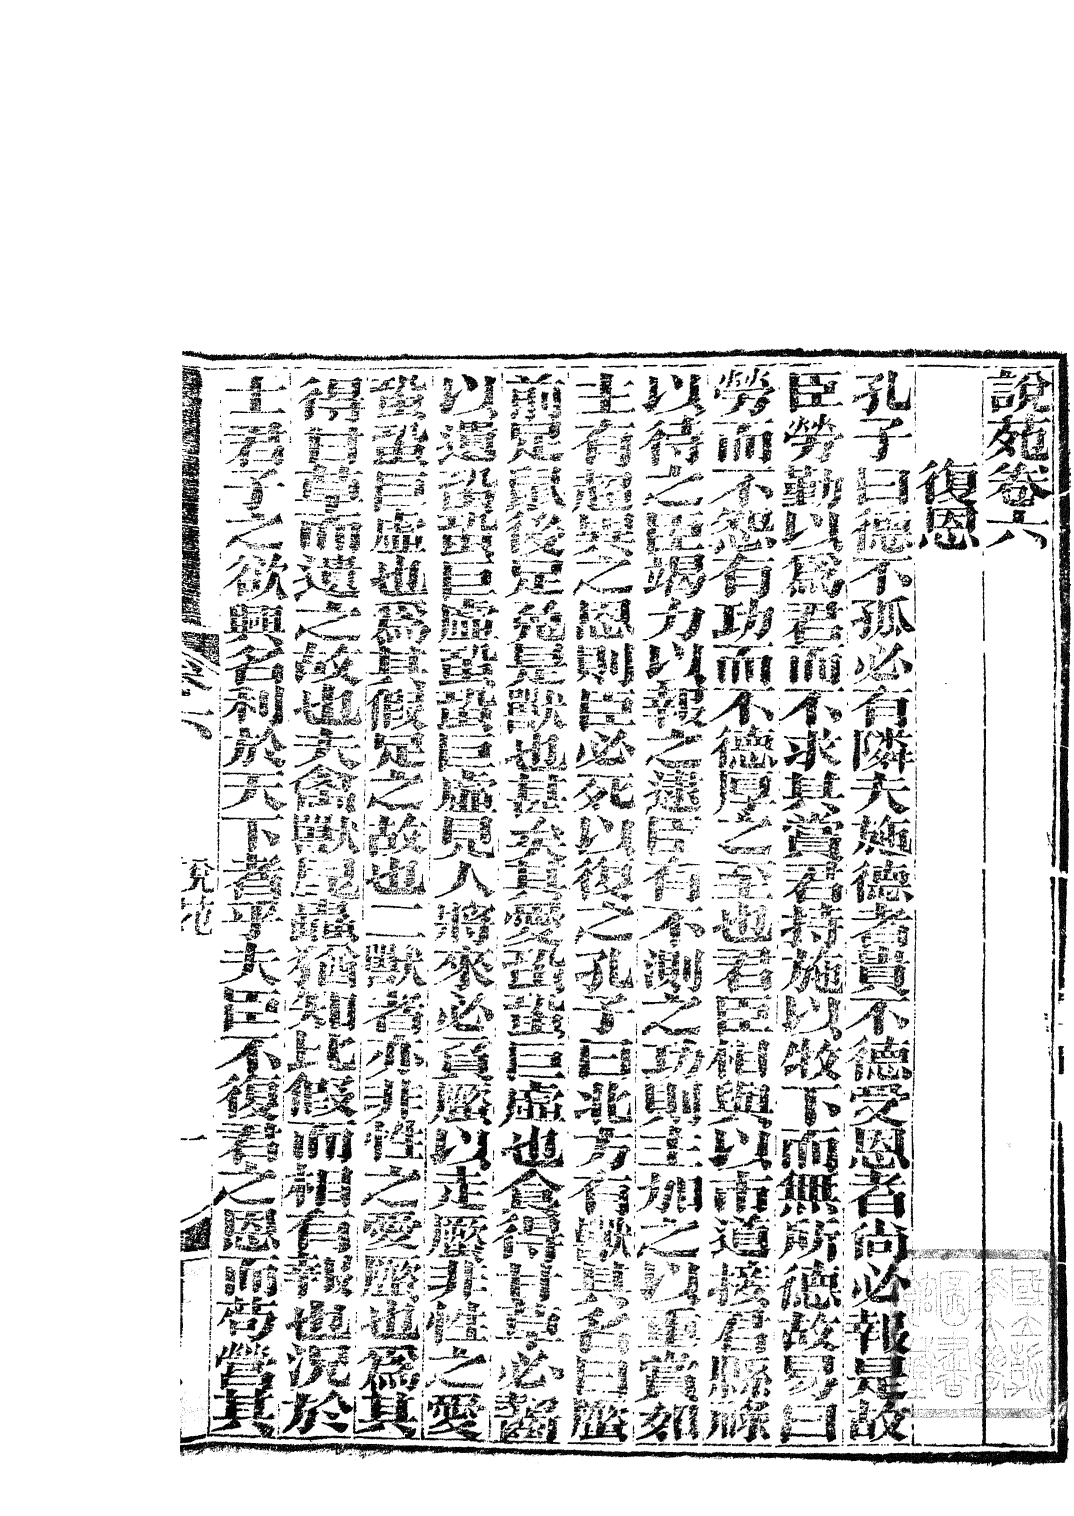 說苑卷六
復恩
孔子曰德不孤必有隣夫施德者貴不德受恩者尚必報是故
臣勞勤以爲君而不求其賞君持施以牧下而無所德故易曰
勞而不怨有功而不德厚之至也君臣相與以市道接君縣祿
以待之臣竭力以報之逮臣有不測之功則主加之以重賞如
主有超異之恩則臣必死以復之孔子曰北方有獸其名曰蟨
前足鼠後足兔是獸也甚矣其愛蛩蛩巨虛也食得甘草必齧
以遺蛩蛩巨虛蛩蛩巨虛見人將來必負蟨以走蟨非性之愛
蛩蛩巨虛也爲其假足之故也二獸者亦非性之愛蟨也爲其
得甘草而遺之故也夫禽獸昆蟲猶知比假而相有報也況於
士君子之欲興名利於天下者乎夫臣不復君之恩而苟營其
卷六
說苑
一